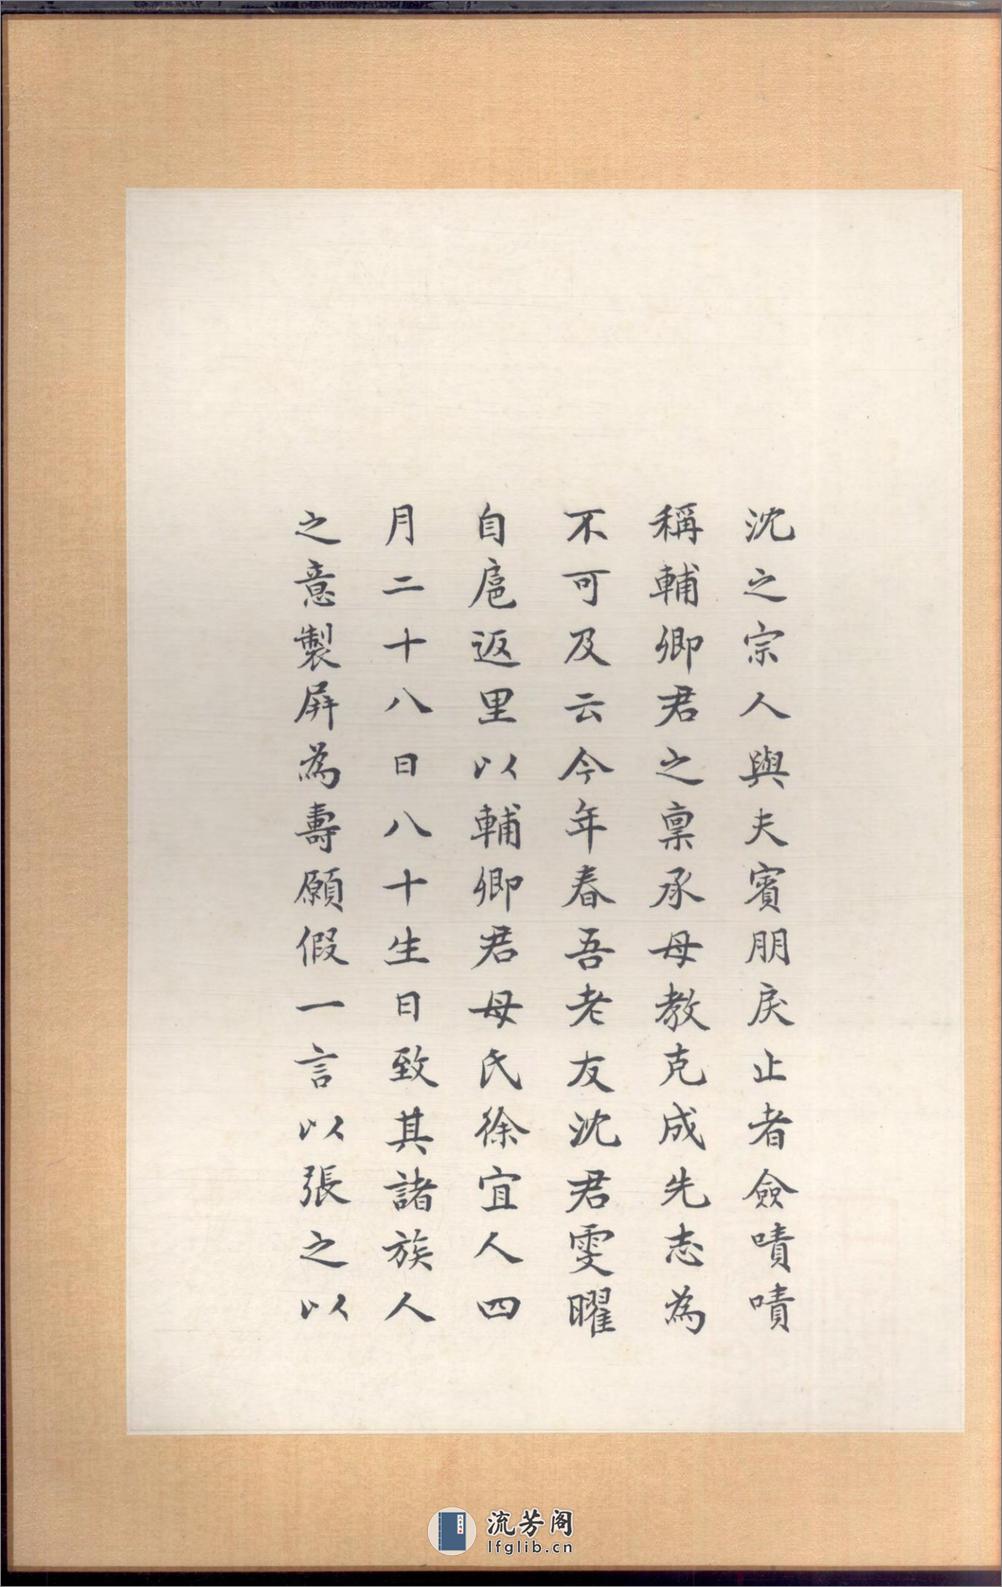 沈之宗人與夫賓朋戾止者僉嘖嘖
稱輔卿君之稟承母教克成先志為
不可及云今年春吾老友沈君雯曜
自扈返里以輔卿君母氏徐宜人四
月二十八日八十生日致其諸族人
之意製屏為壽願假一言以張之以
流芳阁
lfglib.cn